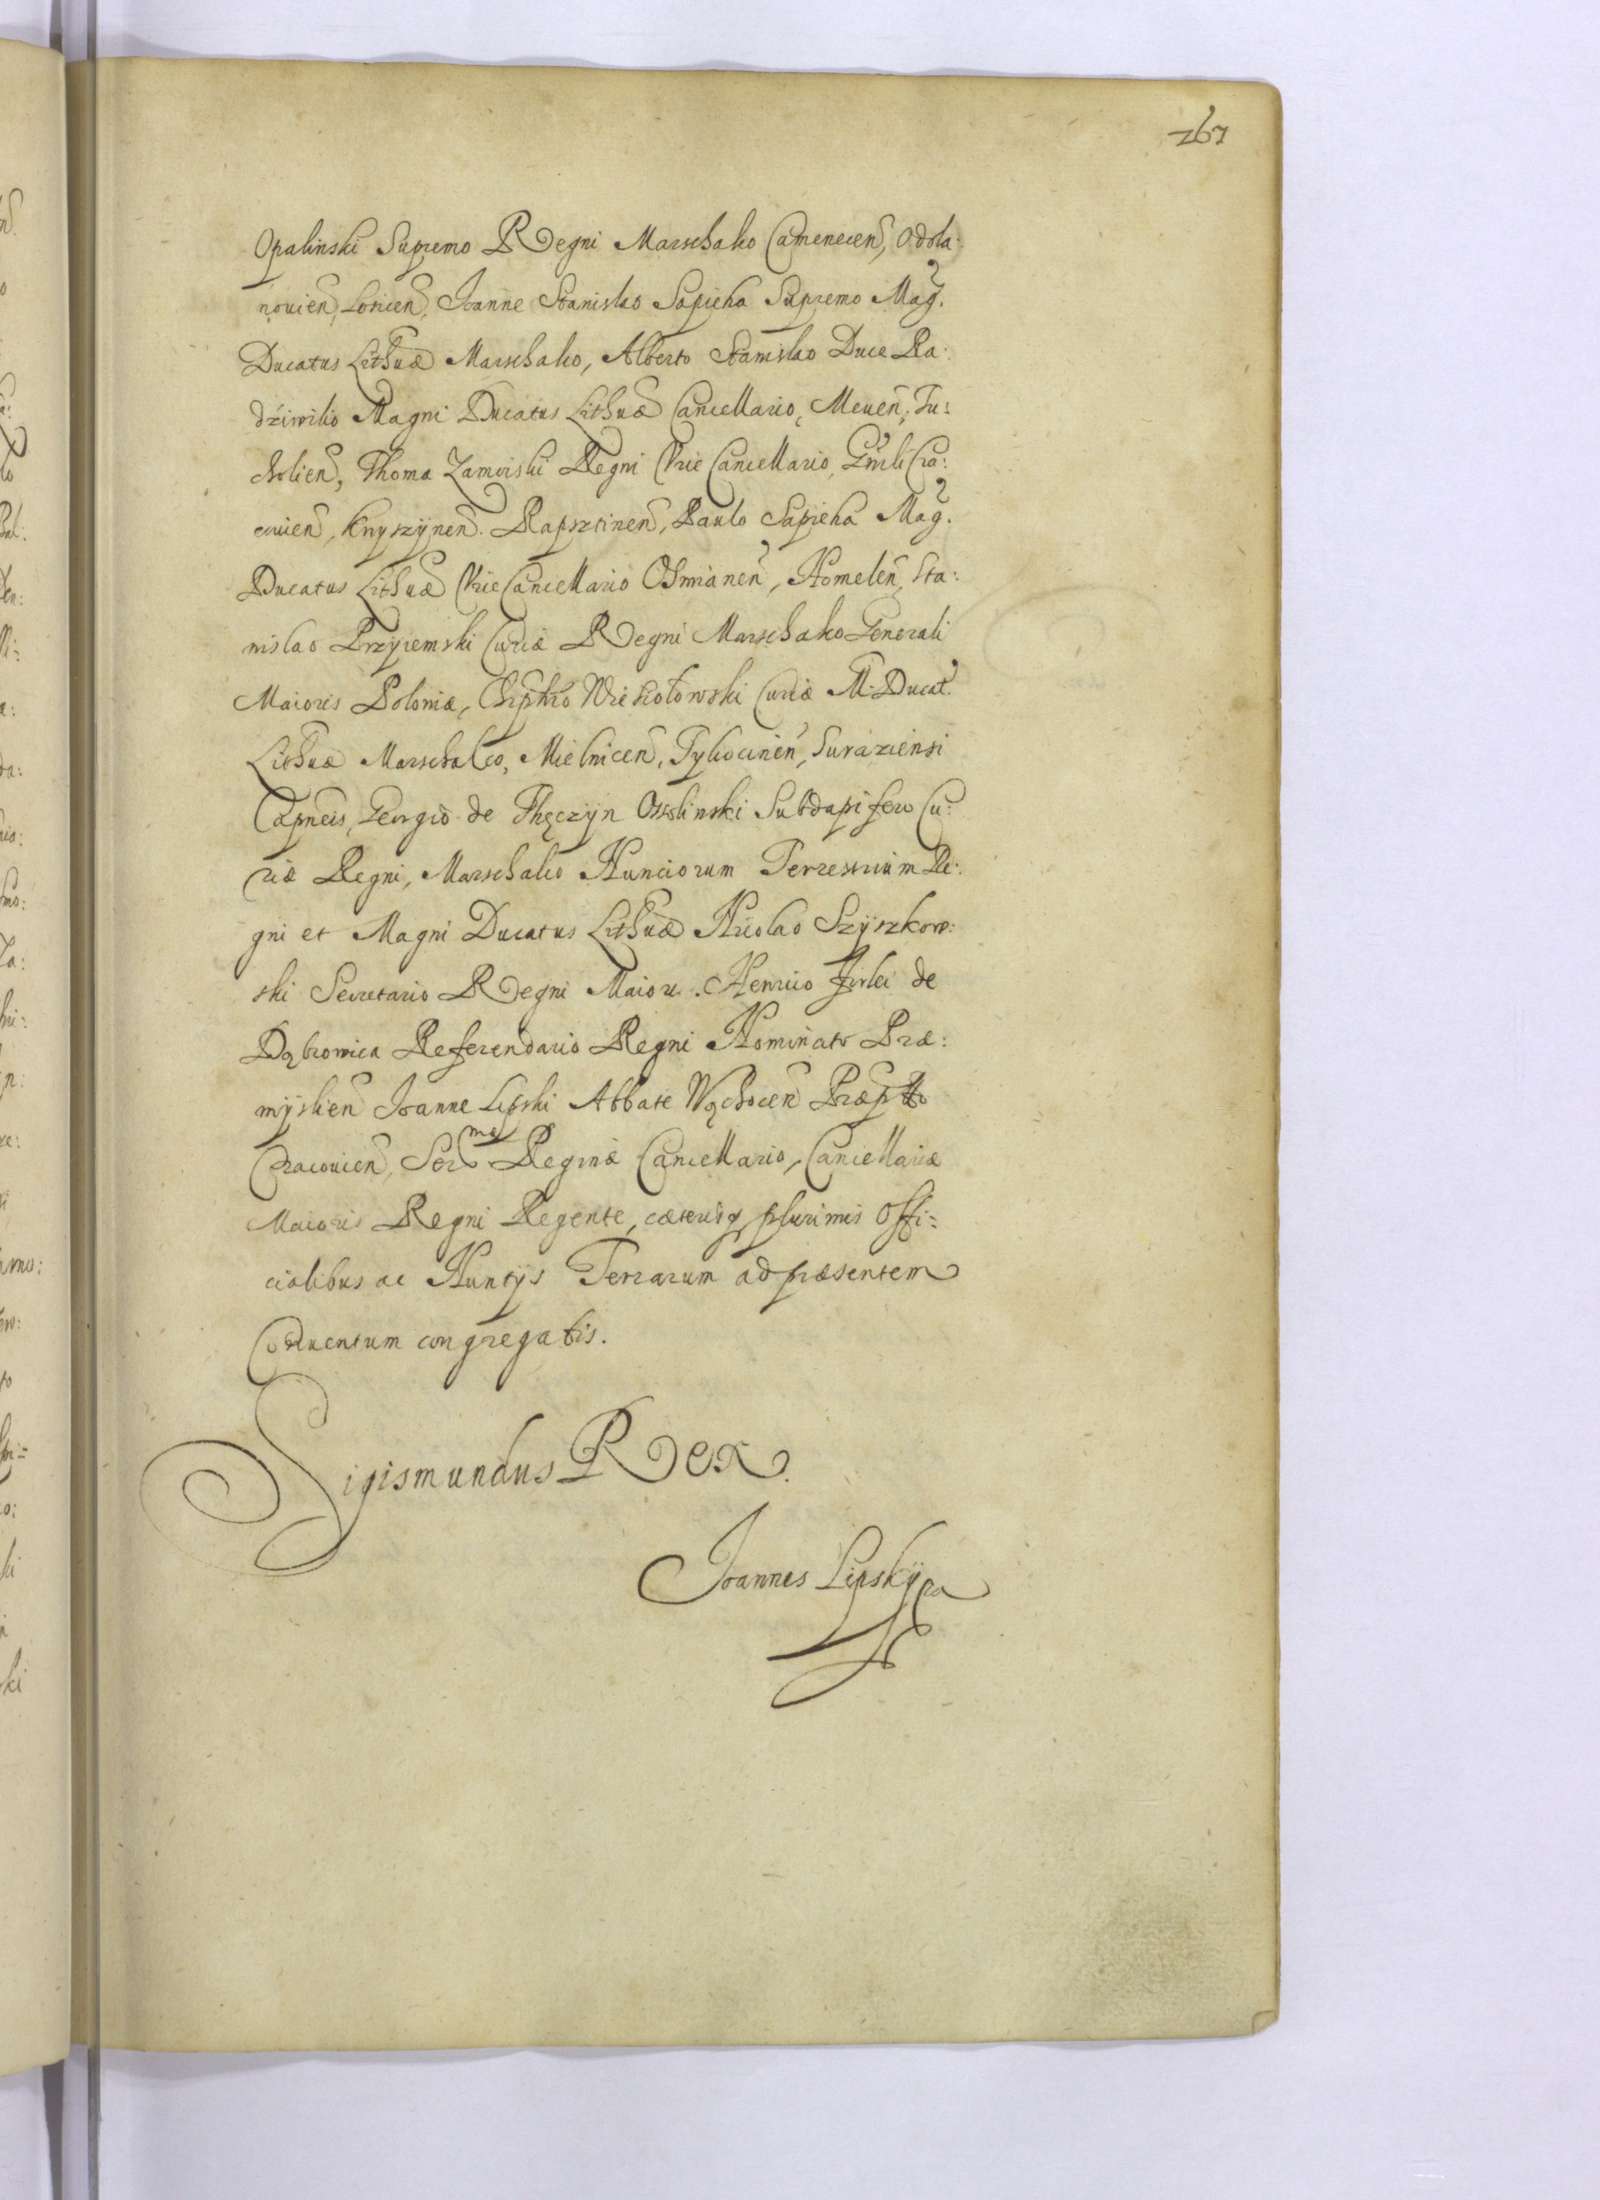 267
Opalinski Supremo Regni Marschalco Camenecen̄, Odola:
nouien̄, Losicen̄, Joanne Stanislao Sapieha Supremo Mag.
Ducatus Lithuæ Marschalco, Alberto Stanislao Duce Ra:
dziwilio Magni Ducatus Lithuæ Cancellario, Meuen̄, Tu:
cholien̄, Thoma Zamoiski Regni Vice Cancellario, Gn̄rli Cra:
couien̄, Knyszÿnen̄. Rapsztinen̄, Paulo Sapieha Mag.
Ducatus Lithuæ Vice Cancellario Osmianen̄, Homelen̄, Sta:
nislao Przyiemski Curiæ Regni Marschalco Generali
Maioris Poloniæ, Chrpħro Wiesiołowski Curiæ M. Ducat.
Lithuæ Marschalco, Mielnicen̄, Tykocinen̄, Suraziensi
Capneis, Georgio de Thęczÿn Ossolinski Subdapifero Cu:
riæ Regni, Marschalco Nunciorum Terrestrium Re:
gni et Magni Ducatus Lithuæ Nicolao Szÿszkow:
ski Secretario Regni Maiore. Henrico Firlei de
Dąbrowica Referendario Regni Nominato Præ:
mÿslien̄ Joanne Lipski Abbate Wąchocen̄ Præptto
Cracouien̄, Ser^mæ Reginæ Cancellario, Cancellariæ
Maioris Regni Regente, cæterisq, plurimis Offi:
cialibus ac Nuntÿs Terrarum ad præsentem
Conuentum congregatis.
Sigismundus Rex.
Joannes Lipskÿ